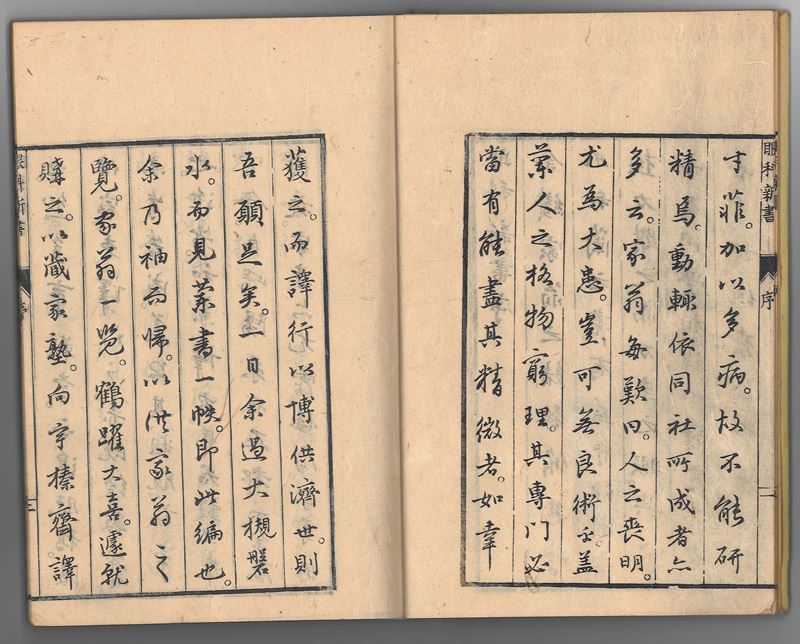 眼科新書 序 二
才菲。加以多病。故不能研
精焉。動輒依同社所成者亦
多云。家翁每歎曰。人之喪明。
尤為大患。豈可無良術乎。蓋
蘭人之格物窮理。其專門必
當有能盡其精微者。如幸
獲之。而譯行以博供濟世。則
吾願足矣。一日余過大槻磐
水。而見蘭書一帙。即此編也。
余乃袖而歸。以供家翁之
覽。家翁一覽。鶴躍大喜。遽就
購之。以藏家塾。向宇榛齋譯
眼科新書 序 三